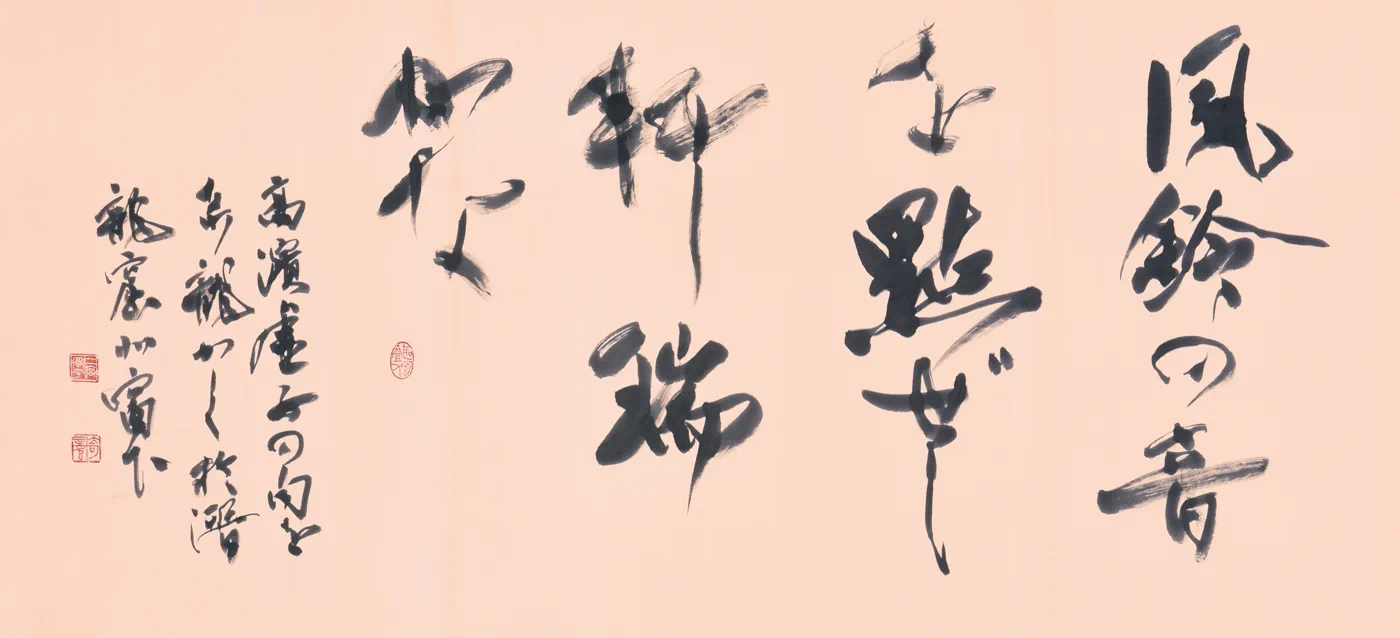 風鈴の音
を點ぜし
軒端
かな
高濱虚子の句を
龍かく於潛
龍窟北窗下